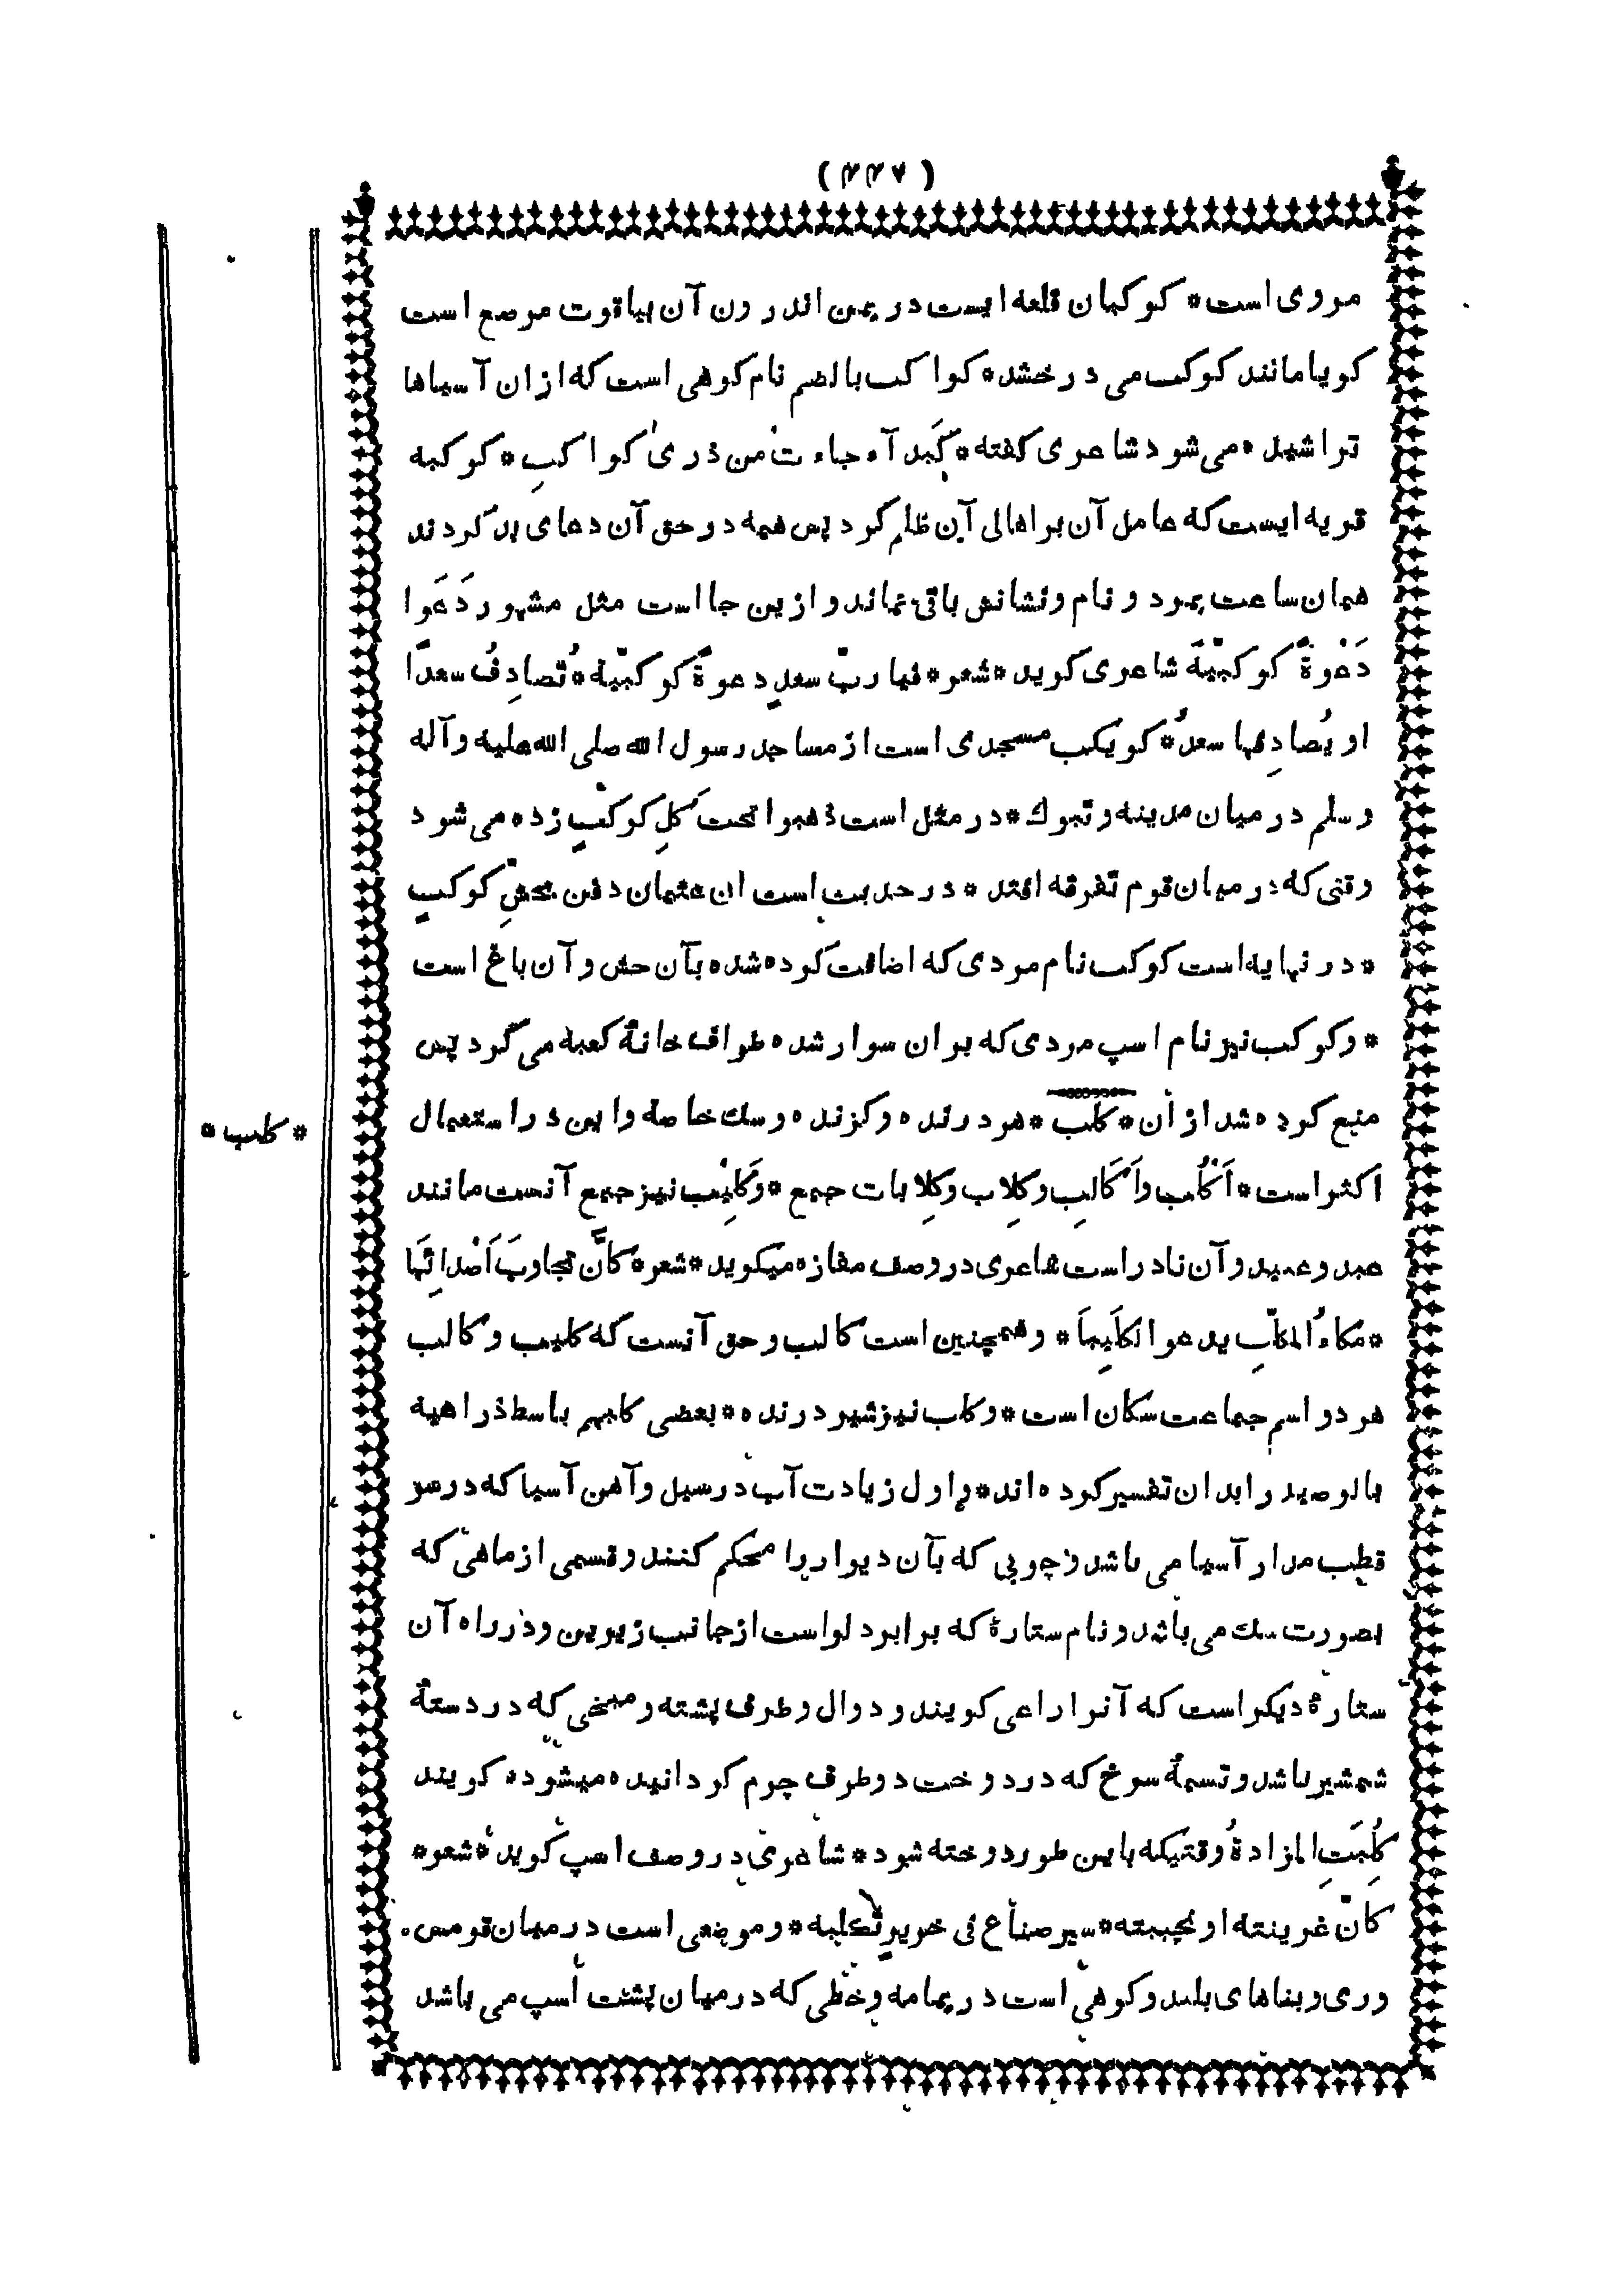 (۲۲۷)
مروی است * کوکبان قلعه ایست در یمن اندرون آن بیاقوت مرصع است
کویا مانند کوکب می درخشد * کواکب بالضم نام کوهی است که ازان آسیاها
تراشیده می شود شاعری کفته * کَبِد آء جاءت من ذری کواکبِ * کوکبه
قریه ایست که عامل آن بر اهالی آن ظلم کرد پس همه در حق آن دعای بد کردند
همان ساعت بمرد و نام و نشانش باقی نماند و ازین جا است مثل مشهور دَعَوا
دَعْوةً کوکبّیةً شاعری کوید * شعر * فیا ربّ سعدٍ دعوةً کوکبّیة * تُصادِفُ سعدًا
او یُصادِفها سعدُ * کویکب مسجدی است از مساجد رسول الله صلی الله علیه وآله
وسلم درمیان مدینه و تبوك * در مثل است ذهبوا تحت کلِ کوکبٍ زده می شود
وقتی که درمیان قوم تفرقه افتد * در حدیث است ان عثمان دفن بحشِّ کوکبٍ
* در نهایه است کوکب نام مردی که اضافت کرده شده بآن حش و آن باغ است
* وکوکب نیز نام اسپ مردی که بران سوار شده طواف خانۀ کعبه می کرد پس
منع کرده شد از آن * کلب * هر درنده و کزنده و سك خاصة و این در استعمال
اکثر است * اَکْلُب واَکَالِب وکِلاب وکِلابات جمع * وکَلِیْب نیز جمع آنست مانند
عبد و عبید و آن نادر است شاعری در وصف مفازه میکوید * شعر * کاَنّ تجاوبَ اَصْدائِهَا
* مکاءُ المکلِّب یدعو الکَلِیبَا * و همچنین است کالب و حق آنست که کلیب و کالب
هر دو اسم جماعت سکان است * وکلب نیز شیر درنده * بعضی کلبهم باسط ذراعیه
بالوصید را بدان تفسیر کرده اند * و اول زیادت آب در سیل و آهن آسیا که در سر
قطب مدار آسیا می باشد و چوبی که بآن دیوار را محکم کنند و قسمی از ماهی که
بصورت سك می باشد و نام ستارۀ که برابر دلو است از جانب زیرین و در راه آن
ستارۀ دیکر است که آنرا راعی کویند و دوال و طرف پشته و میخی که در دستۀ
شمشیر باشد و تسمۀ سرخ که در دوخت دو طرف چرم کردانیده میشود * کویند
کُلِبَتِ المزادةُ وقتیکه باین طور دوخته شود * شاعری در وصف اسپ کوید * شعر *
کانّ غر ینته او نجیبته * سیر صناع فی خریزٍ تکلبه * و موضعی است درمیان قومس
وری و بناهای بلند و کوهی است در یمامه و خطی که درمیان پشت اسپ می باشد
* کلب *